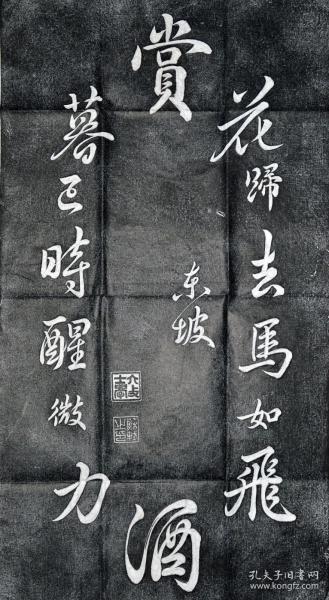 賞
花歸去馬如飛
酒
力微醒時已暮
东坡
孔夫子旧书网
kongfz.com